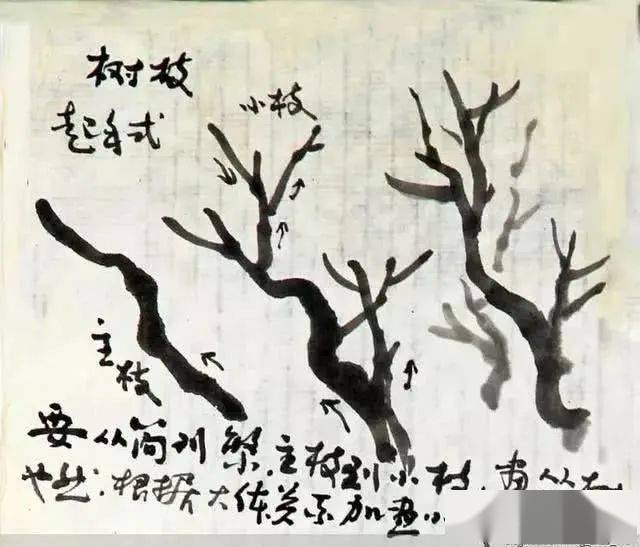 树枝
起手式
小枝
主枝
要从简到繁.主枝到小枝.画从大
根据大体关系加画小